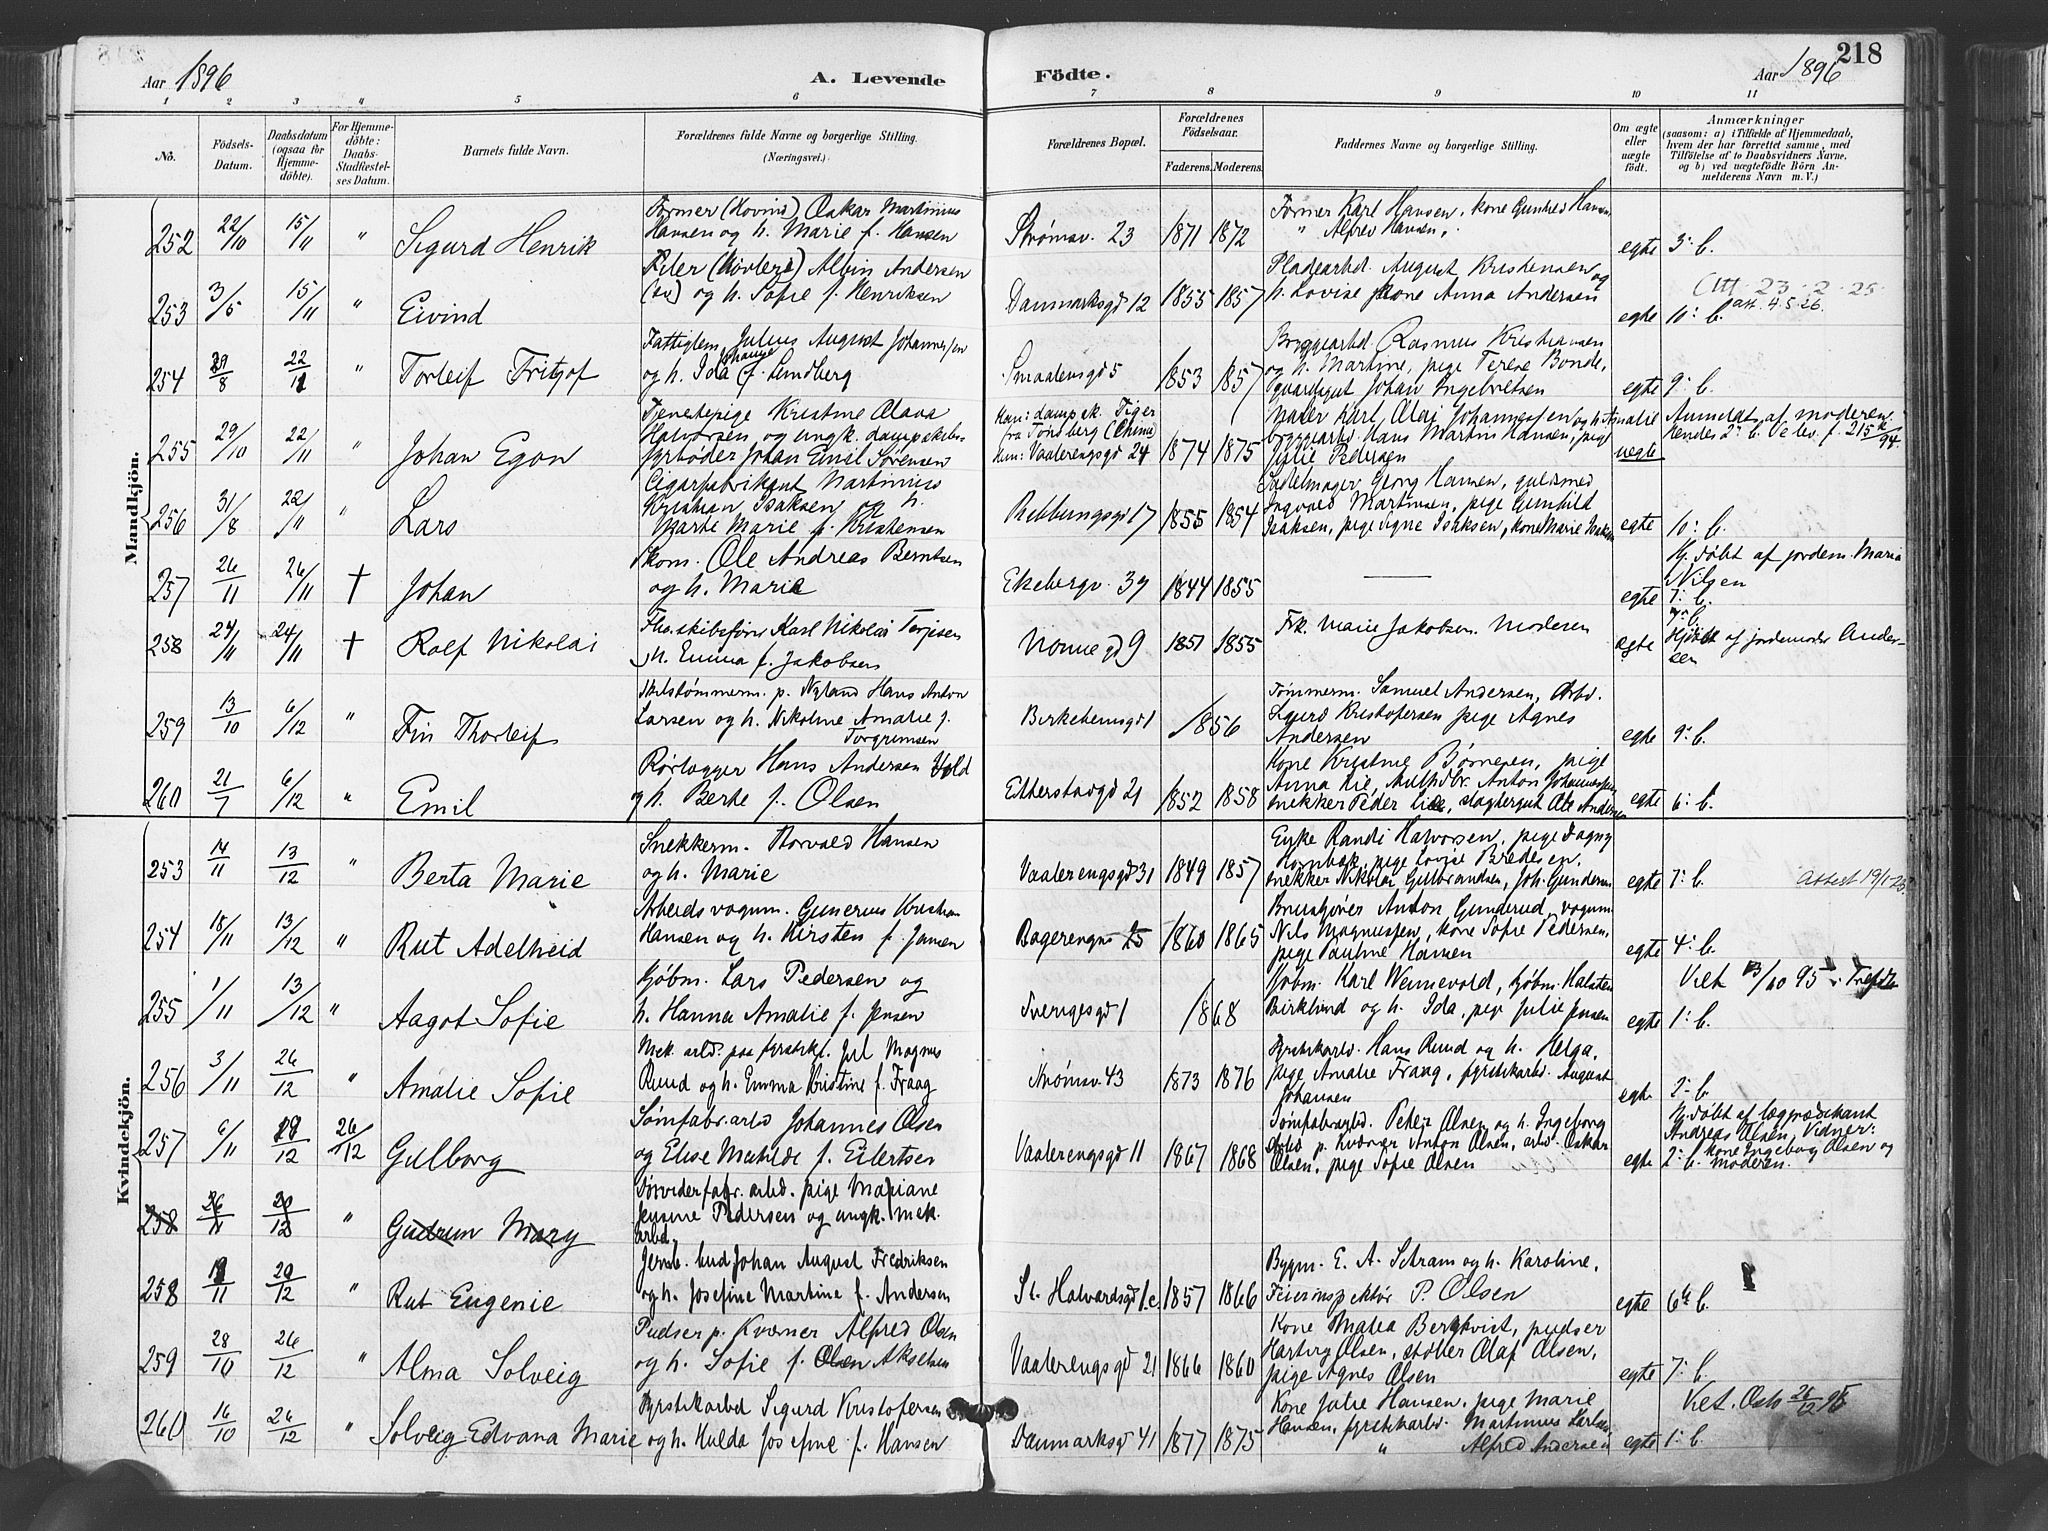 Aar 1896
A. Levende
Födte.
Aar 1896
218
1 2 3 " 5 6 7 8 9 10 11
No.
Födsels-
Datum.
Daabsdatum
(ogsaa for
Hjemme-
döbte).
For Hjemme-
döbte:
Daabs-
Stadfæstel-
ses Datum.
Barnets fulde Navn.
Forældrenes fulde Navne og borgerlige Stilling.
(Næringsvei.)
Forældrenes Bopæl.
Forældrenes
Födselsaar.
Faderens. Moderens.
Faddernes Navne og borgerlige Stilling.
Om ægte
eller
uægte
födt.
Anmærkninger
(saasom: a) i Tilfælde af Hjemmedaab,
hvem der har forrettet samme, med
Tilföielse af to Daabsvidners Navne,
og b) ved uægtefödte Börn An-
melderens Navn m. V.)
Mandkjön.
252 22/10 15/11 " Sigurd Henrik
Former (Hovind) Oskar Martinius
Hansen og h. Marie f. Hansen
Strømsv. 23 1871 1872
Former Karl Hansen, kone Gunhild Hansen,
" Alfred Hansen,
egte 3: b.
253 3/5 15/11 " Eivind
Albin Andersen
og h. Sofie f. Henriksen
Danmarksgd 12 1855 1857
Pladearbd. August Kristensen og
h. Lovise, kone Anna Andersen
egte 10: b. att. 4.5.26.
Att. 23.2.25.
254 29/8 22/11 " Torleif Fritjof
Fattiglem Julius August Johannessen
og h. Ida Johanne f. Lundberg
Smaalensgd 5 1853 1857
Bryggearbd. Rasmus Kristiansen
og h. Martine, pige Terese Bonde,
Johan Ingebretsen
egte 9: b.
255 29/10 22/11 " Johan Egon
Tjenestepige Kristine Olava
Halvorsen og ungk. dampskibs-
fyrbøder Johan Emil Sørensen
Han: dampsk. Tiger
fra Tønsberg (China)
Hun: Vaalerengsgd 24 1874 1875
Maler Karl Olaf Johannessen og h. Amalie
bryggearbd. Hans Martin Hansen, pige
Julie Pedersen
uegte
Anmeldt af moderen
kendes 2: b.
256 31/8 22/11 " Lars
Cigarfabrikgut Martinius
Kristian Isaksen og h.
Marte Marie f. Kristensen
Rubbungsgd 17 1855 1854
Sadelmager Georg Hansen, guldsmed
Ingvald Martinsen, pige Gunhild
Isaksen, pige Signe Isaksen, kone Marie Isaksen
egte 10: b.
257 26/11 26/11 † Johan
Skom. Ole Andreas Berntsen
og h. Marie
Ekebergv. 39 1844 1855 —
egte
Hj.døbt af jordem. Maria
Nilsen
7: b.
258 24/11 24/11 † Rolf Nikolai
Fhv. skibsfører Karl Nikolai Terjesen
h. Emma f. Jakobsen
Nonnegd 9 1851 1855
Frk. Marie Jakobsen. Moderen
egte
Hjdøbt af jordemoder Ander-
sen
259 13/10 6/12 " Fin Thorleif
Skibstømmerm. p. Nyland Hans Anton
Larsen og h. Nikoline Amalie f.
Torgrimsen
Birkebeinsgd 1 1856
Tømmerm. Samuel Andersen, Arbd.
Sigurd Kristofersen pige Agnes
Andersen
egte 9: b.
260 21/7 6/12 " Emil
Rørlægger Hans Andersen Vold
og h. Berte f. Olsen
Etterstadgd 21 1852 1858
Kone Kristine Børnesen, pige
Anna Lie, Anton Johannessen,
snekker Peder Lie, slagtergut Ole Andersen
egte 6: b.
Kvindekjön.
253 14/11 13/12 " Berta Marie
Snekkerm. Torvald Hansen
og h. Marie
Vaalerengsgd 31 1849 1857
Enke Randi Halvorsen, pige Dagny
Hornbæk, pige Lovise Bredesen,
snekker Nikolai Gulbrandsen, Joh. Gundersen
egte 7: b. Attest 19/1-25
254 18/11 13/12 " Rut Adelheid
Arbeidsvognm. Gunerius Kristian
Hansen og h. Kirsten f. Jansen
Bagerengv 25 1860 1865
Anton Gunderud, vognm.
Nils Magnussen, kone Sofie Pedersen,
pige Pauline Hansen
egte 4: b.
255 1/11 13/12 " Aagot Sofie
Kjøbm. Lars Pedersen og
h. Hanna Amalie f. Jensen
Sverigesgd 1 1868
Kjøbm. Karl Wennevold, kjøbm. Halsten
Birklund og h. Ida, pige Julie Jensen
egte 1: b.
Viet 13/10 95 i Trefold.
256 3/11 26/12 " Amalie Sofie
Mek. arbd. paa fyrstikf. Jul Magnus
Ruud og h. Emma Kristine f. Fraag
Strømsv. 43 1873 1876
Fyrstikarbd. Hans Ruud og h. Helga,
pige Amalie Fraag, fyrstikarbd. August
Johansen
egte 2: b.
257 6/11 19/12 26/12 Gulborg
Sømfabr.arbd Johannes Olsen
og Elise Matilde f. Eilertsen
Vaalerengsgd 11 1867 1868
Sømfabrarbd. Peter Olsen og h. Ingeborg
Arbd p. Kværner Anton Olsen, arbd. Oskar
Olsen, pige Sofie Olsen
egte 2: b.
Hj.døbt af lægprædikant
Andreas Olsen, Vidner:
kone Ingeborg Olsen og
moderen.
258 26/11 20/12 " Gudrun Mary
arbd. pige Mariane
Jensine Pedersen og ungk. mek.
arbd.
258 19/11 20/12 " Rut Eugenie
Jernb. bud Johan August Fredriksen
og h. Josefine Martine f. Andersen
St. Halvardsgd 1.c. 1857 1866
Bygm. E. A. Schram og h. Karoline,
Feierinspektør P. Olsen
egte 6te b.
259 28/10 26/12 " Alma Solveig
Pudser p. Kværner Alfred Olsen
og h. Sofie f. Olsen Akselsen
Vaalerengsgd 21 1866 1860
Kone Matea Bergkvist, pudser
Hartvig Olsen, støber Olaf Olsen,
pige Agnes Olsen
egte 7: b.
260 16/10 26/12 " Solveig Edvana Marie
Fyrstikarbd Sigurd Kristofersen
og h. Hulda Josefine f. Hansen
Danmarksgd 41 1877 1875
Kone Julie Hansen, pige Marie
Hansen, fyrstikarbd. Martinius Karlsen
" Alfred Andersen
egte 1: b.
Viet. Oslo 26/12 95